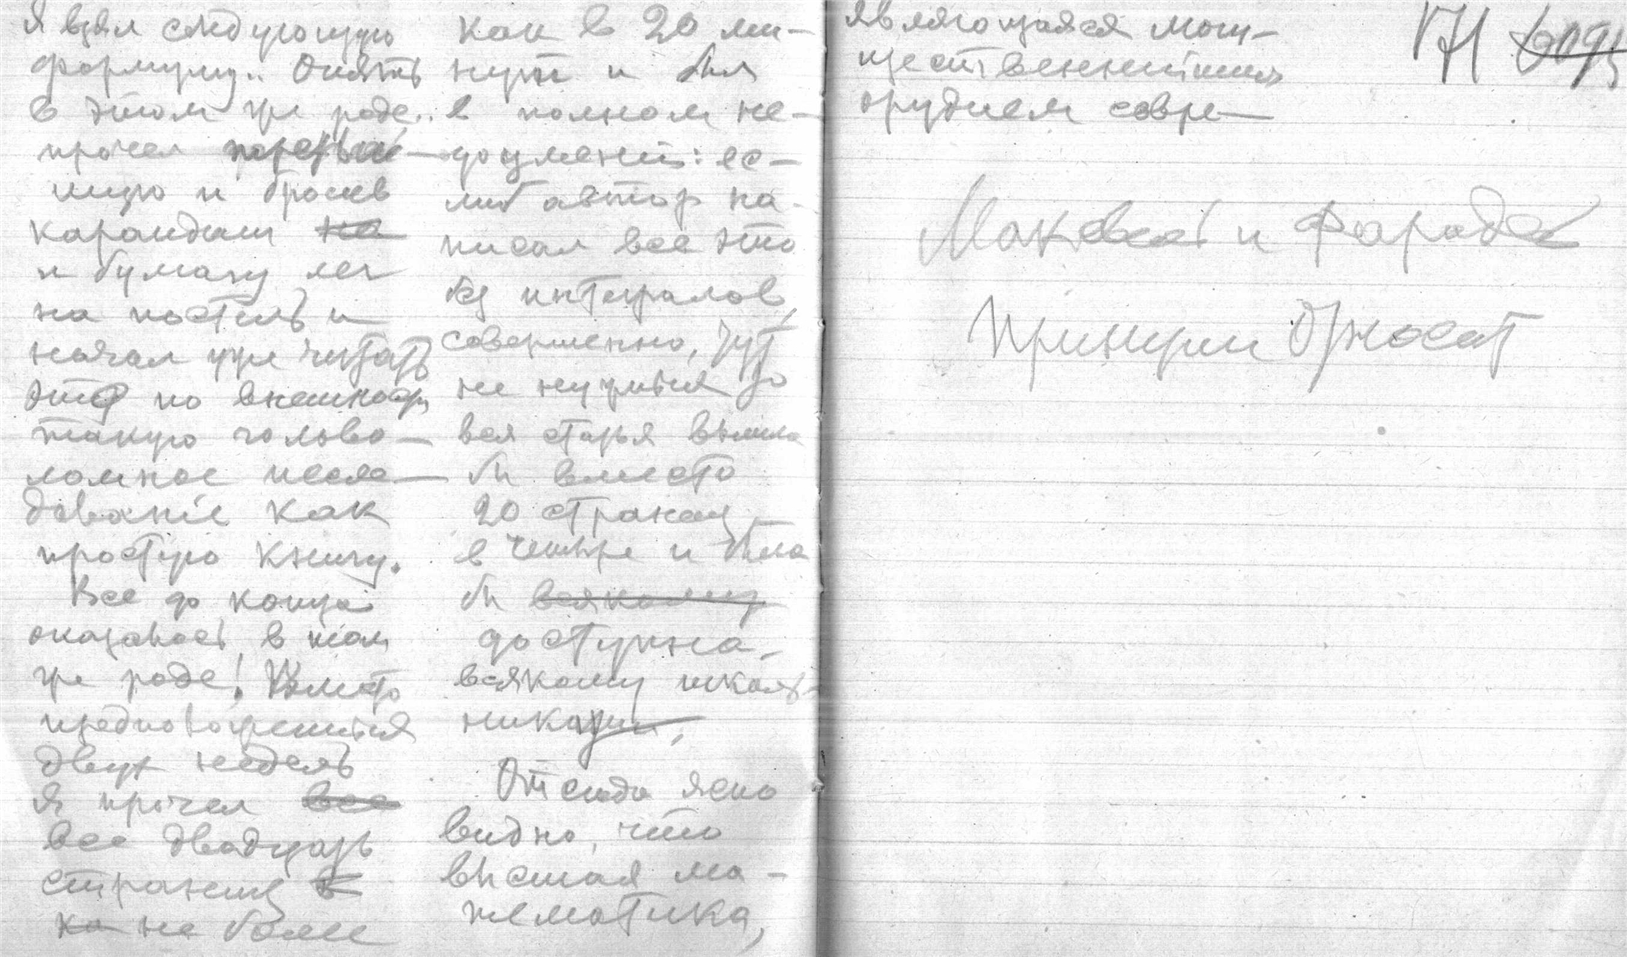 Я взял следующую
формулу.. Опять
в этом же роде..
прочел
щую и бросив
карандаш на
и бумагу лег
на постель и
начал уже читать
это по внешности
такую голово-
ломное иссле-
дование как
простую книгу.
Все до конца
оказалось в том
же роде! Вместо
предположенных
двух недель
я прочел все
все двадцать
страниц в
на не более
как в 20 ми-
нут и был
в полном не-
доумении: ес-
либ автор на-
писал все это
без интегралов,
совершенно, тут
не нужных то
вся статья вышла
бы вместо
20 страниц
в четыре и была
бы всякому
доступна,
всякому школь-
нику
Отсюда ясно
видно, что
высшая ма-
тематика,
являющаяся могу-
щественнейшим
орудием совре-
Максвел и Фарадей
Принцип